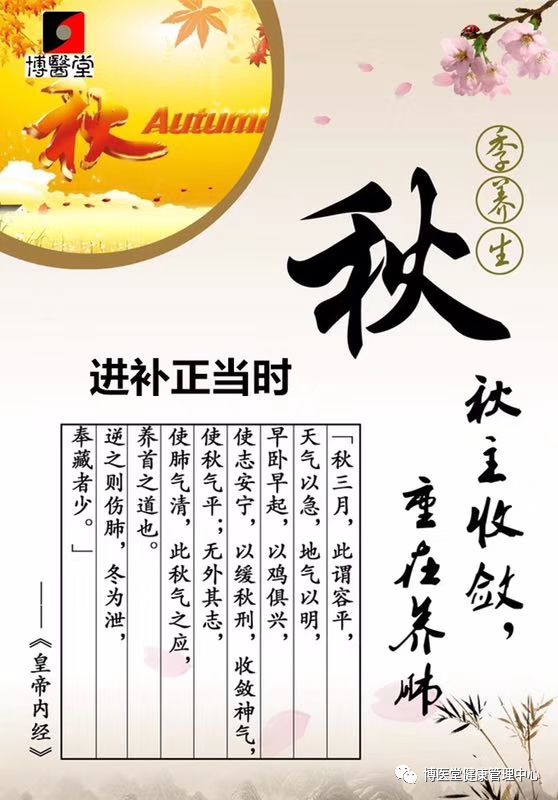 博醫堂
秋 Autumn
秋
季养生
进补正当时
秋主收敛，
重在养肺
「秋三月，此谓容平，
天气以急，地气以明，
早卧早起，以鸡俱兴，
使志安宁，以缓秋刑，收敛神气，
使秋气平；无外其志，
使肺气清，此秋气之应，
养首之道也。
逆之则伤肺，冬为泄，
奉藏者少。」
——《皇帝内经》
博医堂健康管理中心